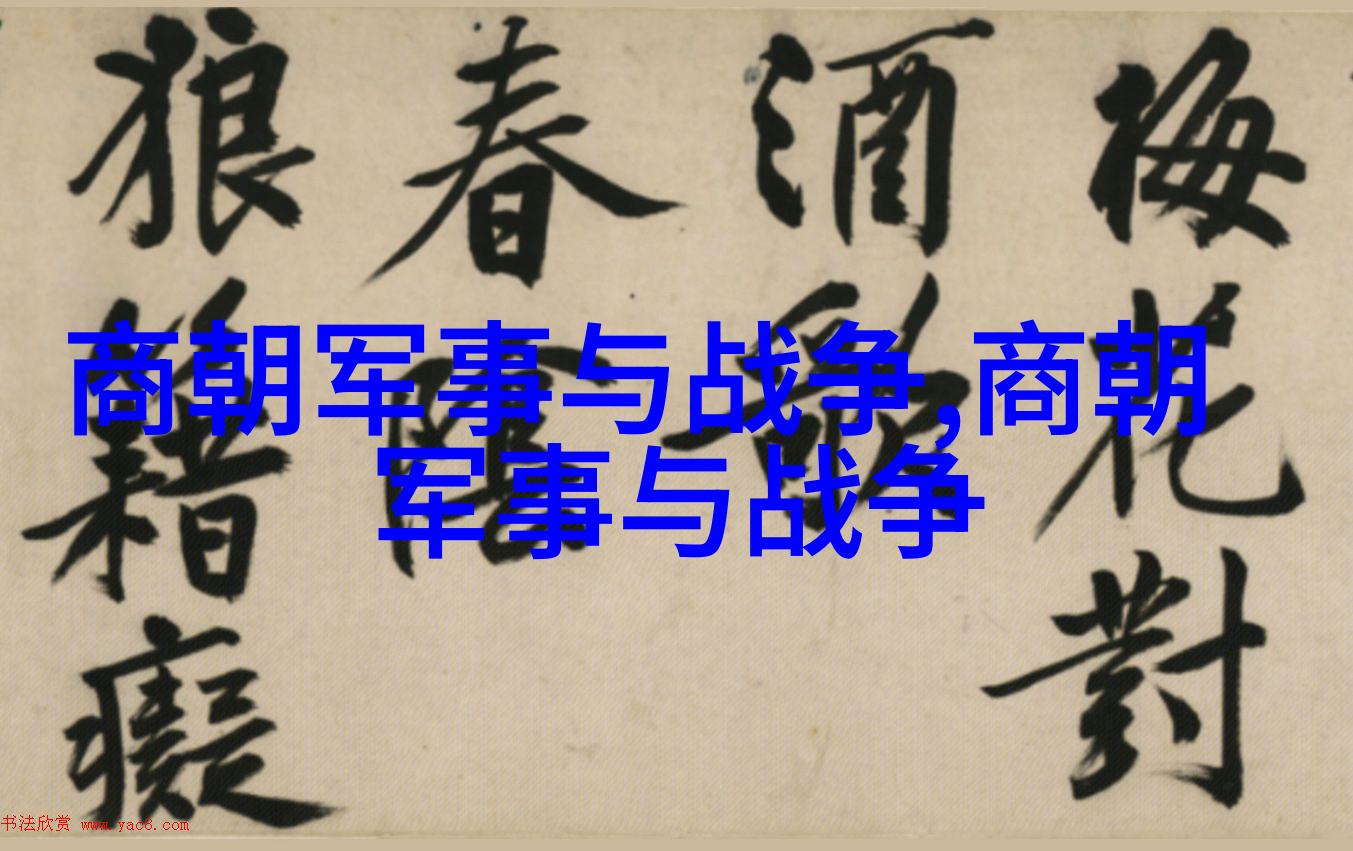 梅花對
酒
春
狼籍癡
商朝军事与战争,商朝
军事与战争
书法欣赏 www.yac8.com